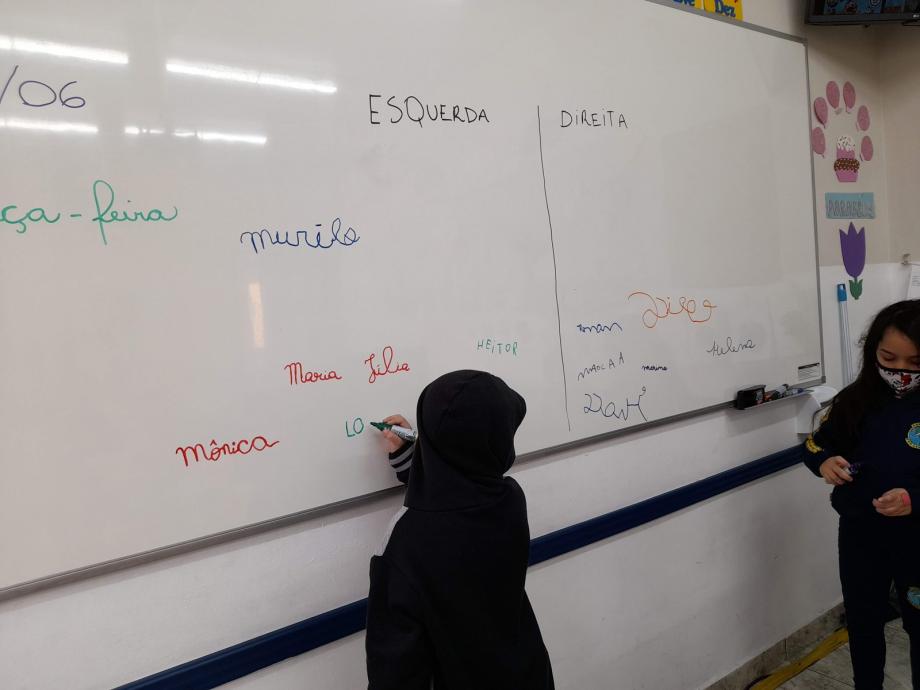 Dez
/06
ESQUERDA
DIREITA
ça-feira
murilo
HEITOR
Maria Júlia
LO
Mônica
Helena
Davi